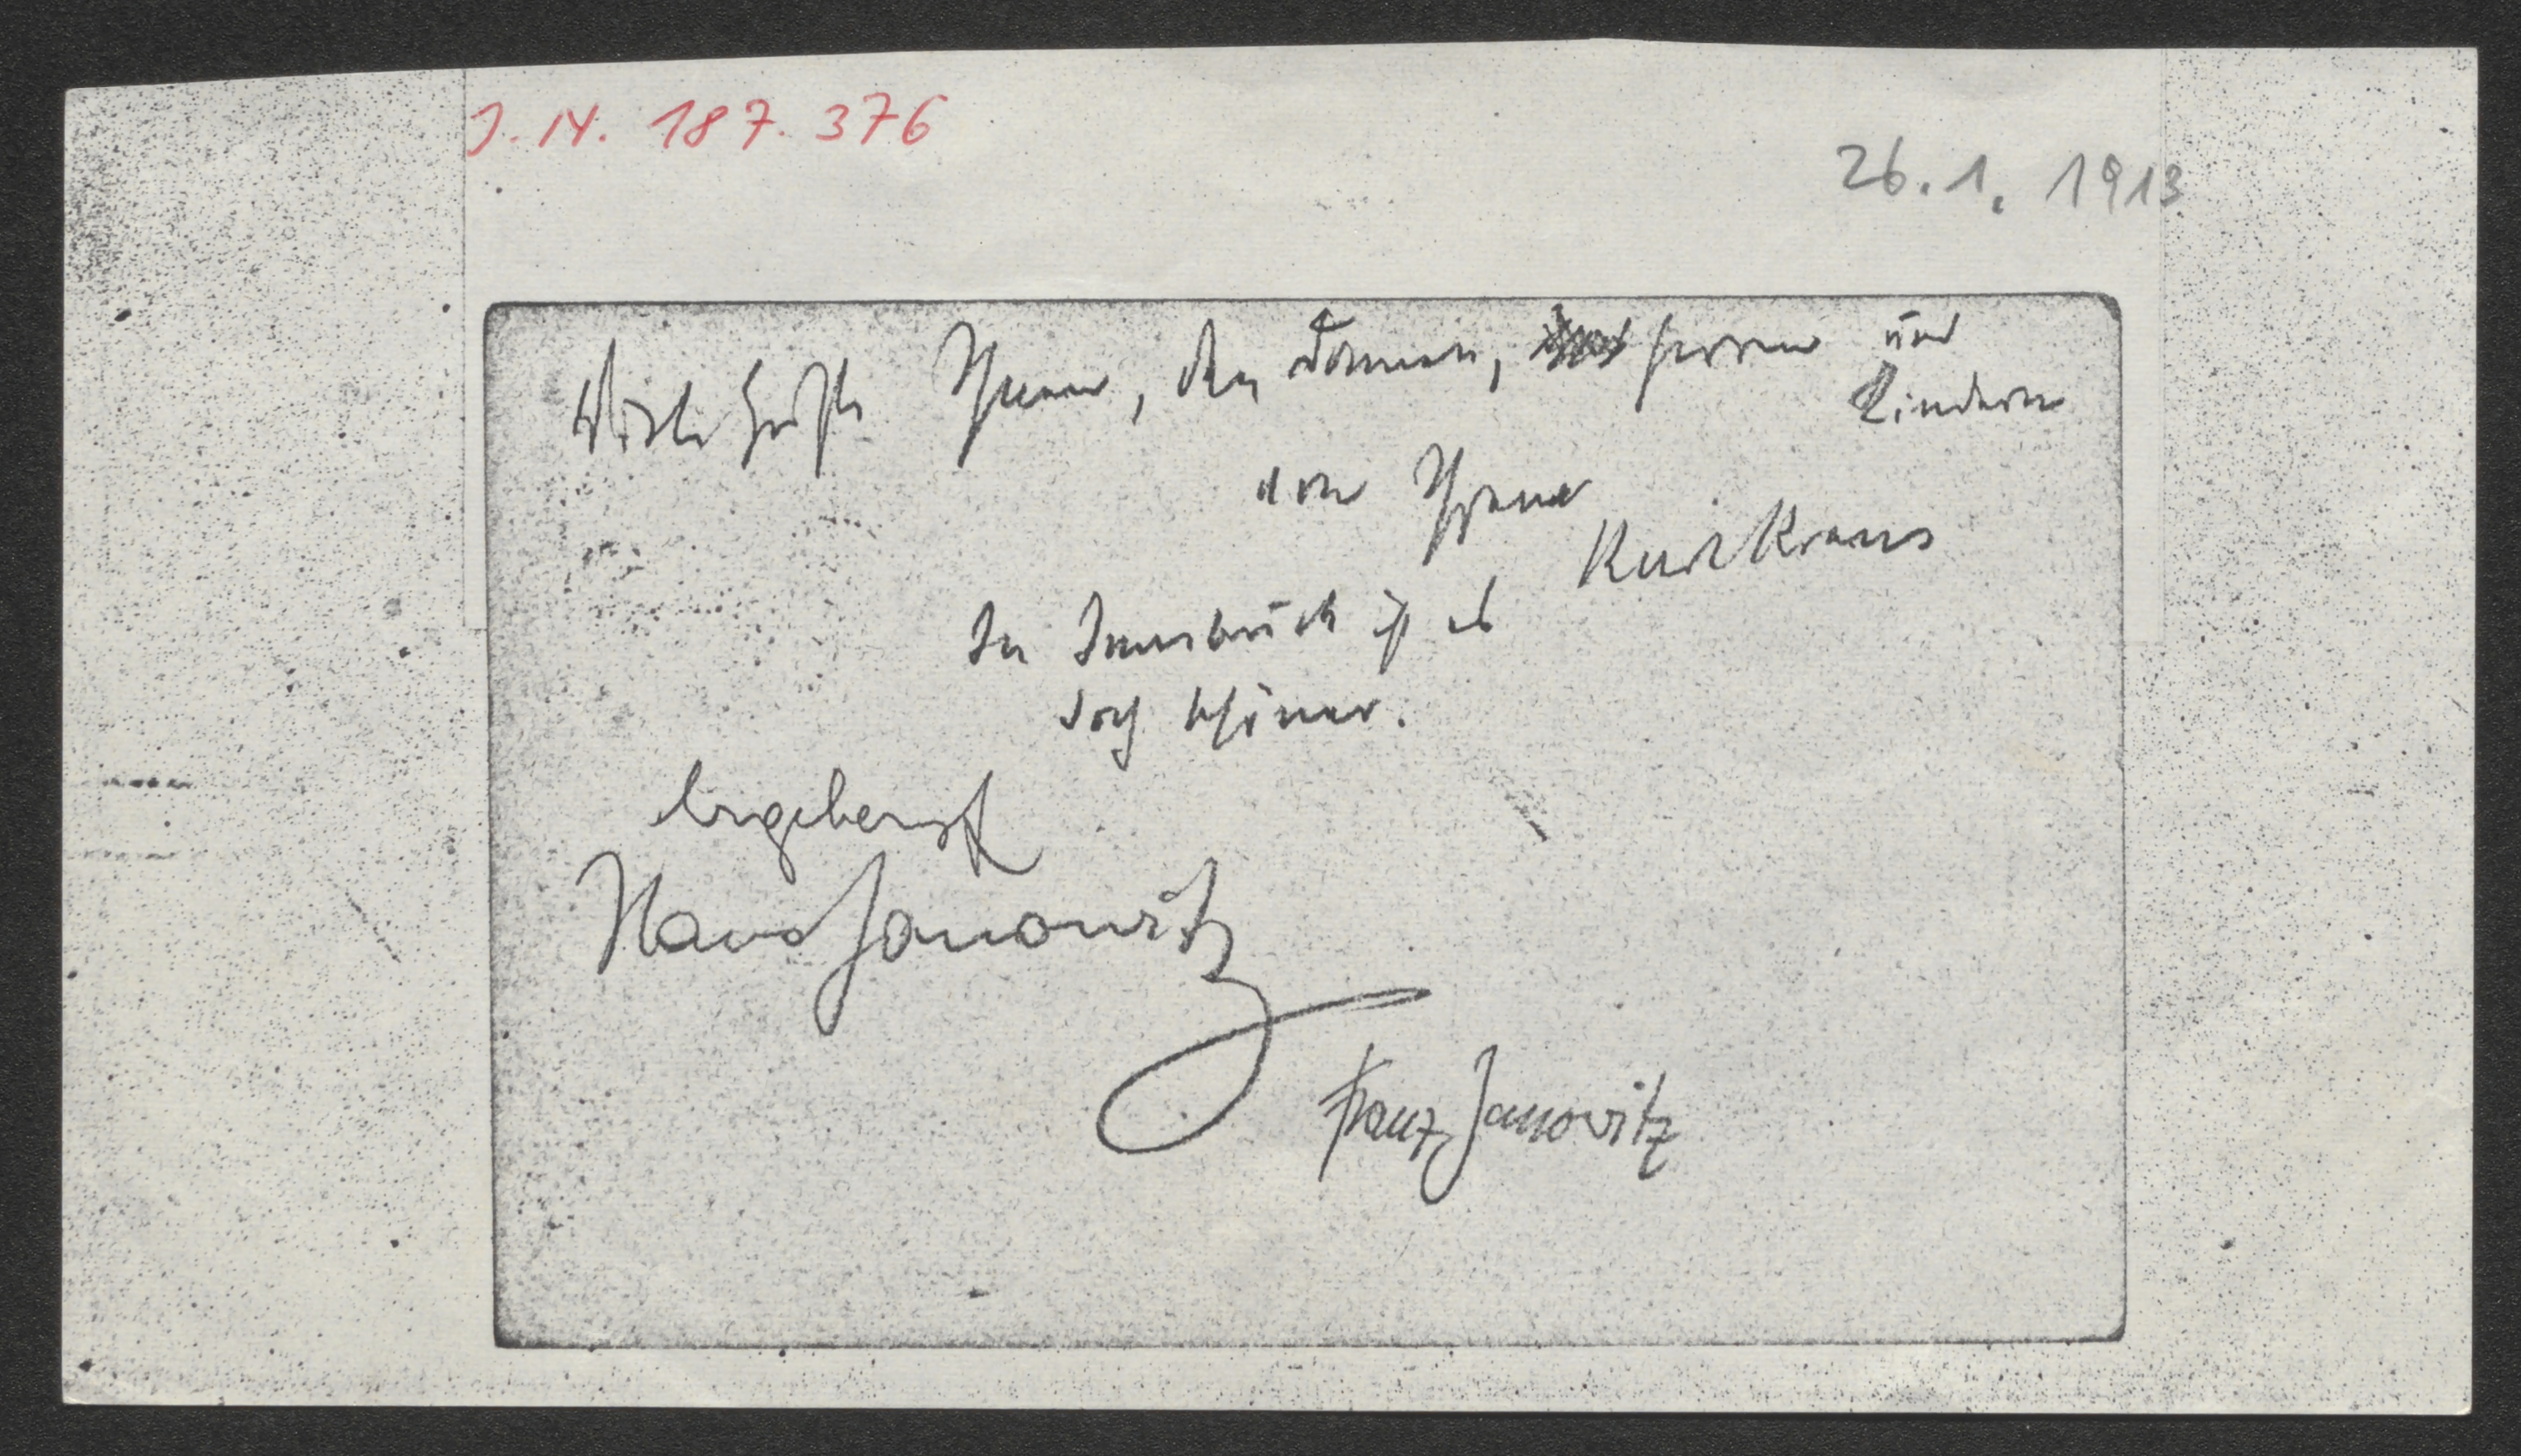 I. N. 187.376
26.1.1913
Viele Grüße Ihnen, den Damen, Herren und
Kindern
von Ihrem
Karl Kraus
In Innsbruck ist es
doch schöner.
Ergebenst
Hans Janowitz
Franz Janowitz